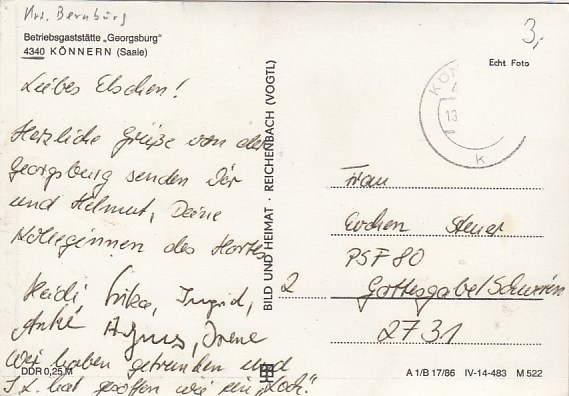 Krs. Bernburg
Betriebsgaststätte „Georgsburg"
4340 KÖNNERN (Saale)
Liebes Elschen!
Herzliche Grüße von der
Georgsburg senden Dir
und Helmut, Deine
Kolleginnen des Hortes
Heidi, Erika, Ingrid,
Anke, Agnes, Irene
Wir haben getrunken und
I.L. hat gesoffen wie ein „Loch".
DDR 0,25 M
BILD UND HEIMAT · REICHENBACH (VOGTL)
3,-
Echt Foto
KÖN
13
K
Frau
Steuer
PSF 80
2 Gottesgabe/Schwerin
2731
A 1/B 17/86 IV-14-483 M 522